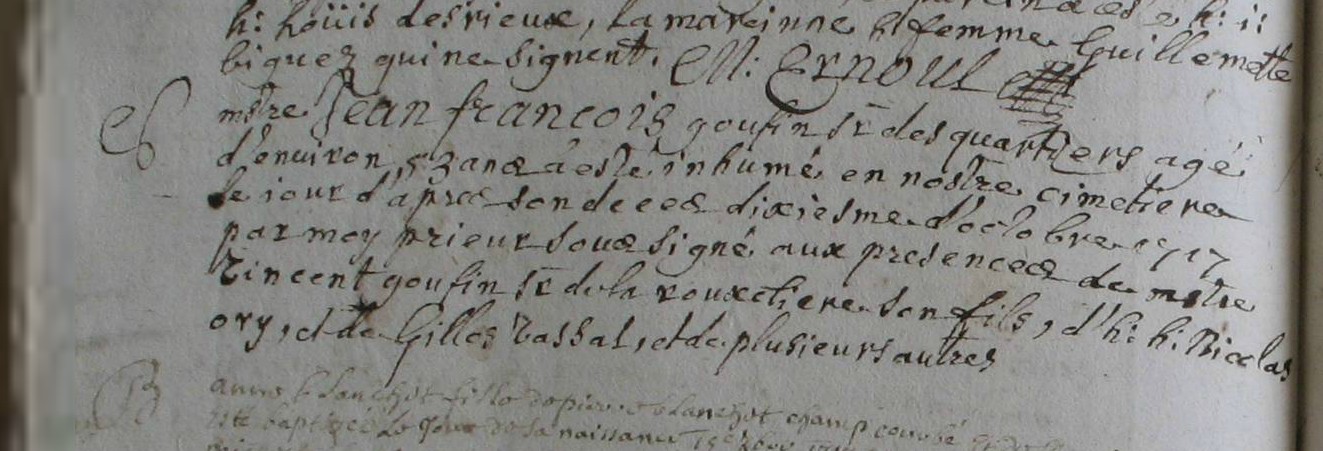 h: h: Loüis desrieux, la mareinne h: femme Guillemette
biguez qui ne signent. M: Ernoul
S mstre Jean françois goufin sr des quartiers agé
d'enuiron 53 ans a esté inhumé en nostre cimetiere
le iour d'apres son deces dixiesme d'octobre 1717
par moy prieur sousigné aux presences de mstre
Vincent goufin sr de la rouxetiere son fils, d'h: h: Nicolas
ory, et de Gilles Vassal, et de plusieurs autres
B anne blanchet fille de pierre blanchet champ courbé
esté baptizée le jour de sa naissance